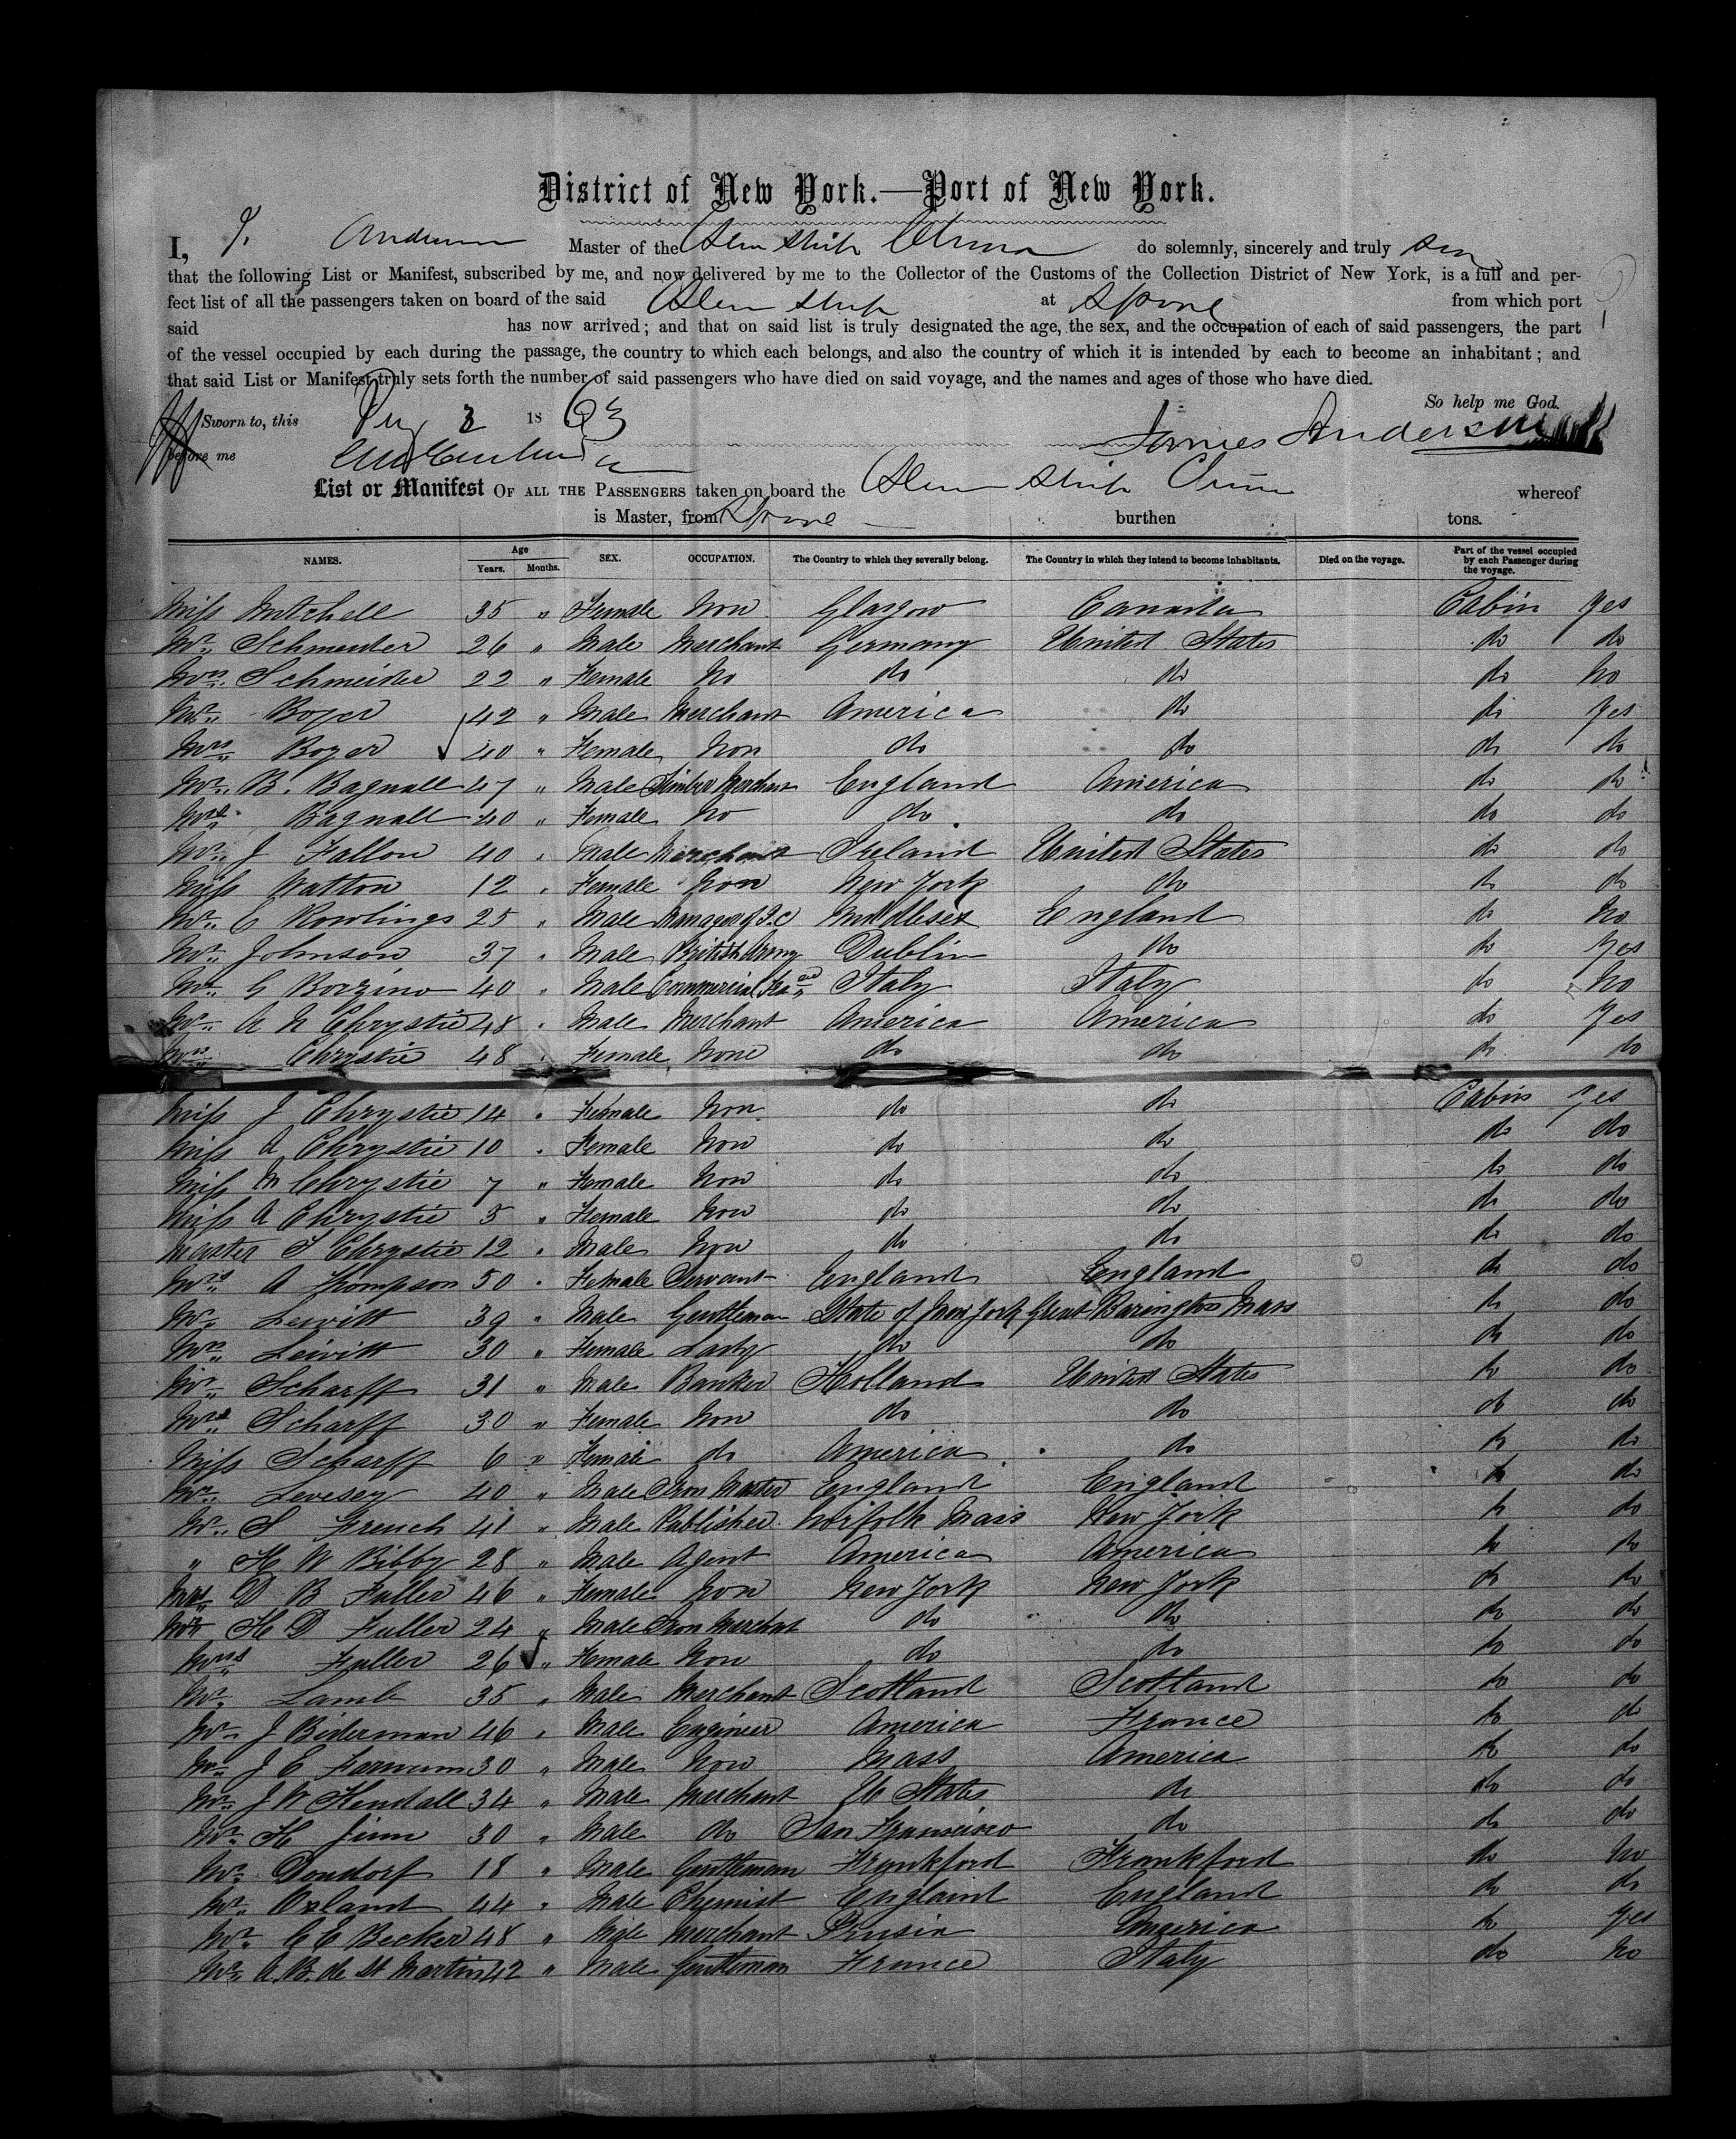 District of New York.—Port of New York.
I, J. Anderson Master of the Stem Ship China do solemnly, sincerely and truly
that the following List or Manifest, subscribed by me, and now delivered by me to the Collector of the Customs of the Collection District of New York, is a full and per-
fect list of all the passengers taken on board of the said Stem Ship at from which port
said has now arrived; and that on said list is truly designated the age, the sex, and the occupation of each of said passengers, the part
of the vessel occupied by each during the passage, the country to which each belongs, and also the country of which it is intended by each to become an inhabitant; and
that said List or Manifest truly sets forth the number of said passengers who have died on said voyage, and the names and ages of those who have died.
So help me God.
Sworn to, this 3 1863
James Anderson
before me
List or Manifest OF ALL THE PASSENGERS taken on board the Stem Ship China whereof
is Master, from burthen tons.
NAMES. Age Years. Months. SEX. OCCUPATION. The Country to which they severally belong. The Country in which they intend to become inhabitants. Died on the voyage. Part of the vessel occupied by each Passenger during the voyage.
Miss Mitchell 35 " Female Non Glasgow Canada Cabin Yes
Mr. Schmeider 26 " Male Merchant Germany United States do do
Mrs. Schmeider 22 " Female No do do do No
Mr. Boyer 42 " Male Merchant America do do Yes
Mrs. Boyer 40 " Female Non do do do do
Mr. B. Bagnall 47 " Male Timber Merchant England America do do
Mrs. Bagnall 40 " Female No do do do do
Mr. J Fallon 40 " Male Merchant Ireland United States do do
Miss Watton 12 " Female Non New York do do do
Mr. C Rowlings 25 " Male Manager of Middlesex England do No
Mr. Johnson 37 " Male British Army Dublin do do Yes
Mr. G Bozzino 40 " Male Commercial Italy Italy do No
Mr. A N Chrystie 48 " Male Merchant America America do Yes
Mrs. Chrystie 48 " Female None do do do do
Miss J Chrystie 14 " Female Non do do Cabin Yes
Miss A Chrystie 10 " Female Non do do do do
Miss M Chrystie 7 " Female Non do do do do
Miss A Chrystie 5 " Female Non do do do do
Master T Chrystie 12 " Male Non do do do do
Mrs. A Thompson 50 " Female Servant England England do do
Mr. Leivitt 39 " Male Gentleman State of New York Great Barington Mass do do
Mrs. Leivitt 30 " Female Lady do do do do
Mr. Scharff 31 " Male Banker Holland United States do do
Mrs. Scharff 30 " Female Non do do do do
Miss Scharff 6 " Female do America do do do
Mr. Levesey 40 " Male Iron Master England England do do
Mr. S French 41 " Male Publisher Norfolk Mass New York do do
" H W Bibby 28 " Male Agent America America do do
Mrs D B Fuller 46 " Female Non New York New York do do
Mr H D Fuller 24 " Male Iron Merchant do do do do
Mrs Fuller 26 " Female Non do do do do
Mr. Lamb 35 " Male Merchant Scotland Scotland do do
Mr. J Biderman 46 " Male Engineer America France do do
Mr. J E Farnum 30 " Male Non Mass America do do
Mr. J W Kendall 34 " Male Merchant U States do do do
Mr. H 30 " Male do San Francisco do do do
Mr. Dondorf 18 " Male Gentleman Frankford Frankford do No
Mr. Oxland 44 " Male Chemist England England do do
Mr. C E Becker 48 " Male Merchant Prusia America do Yes
Mr. A. B. de St Martin 42 " Male Gentleman France Italy do No